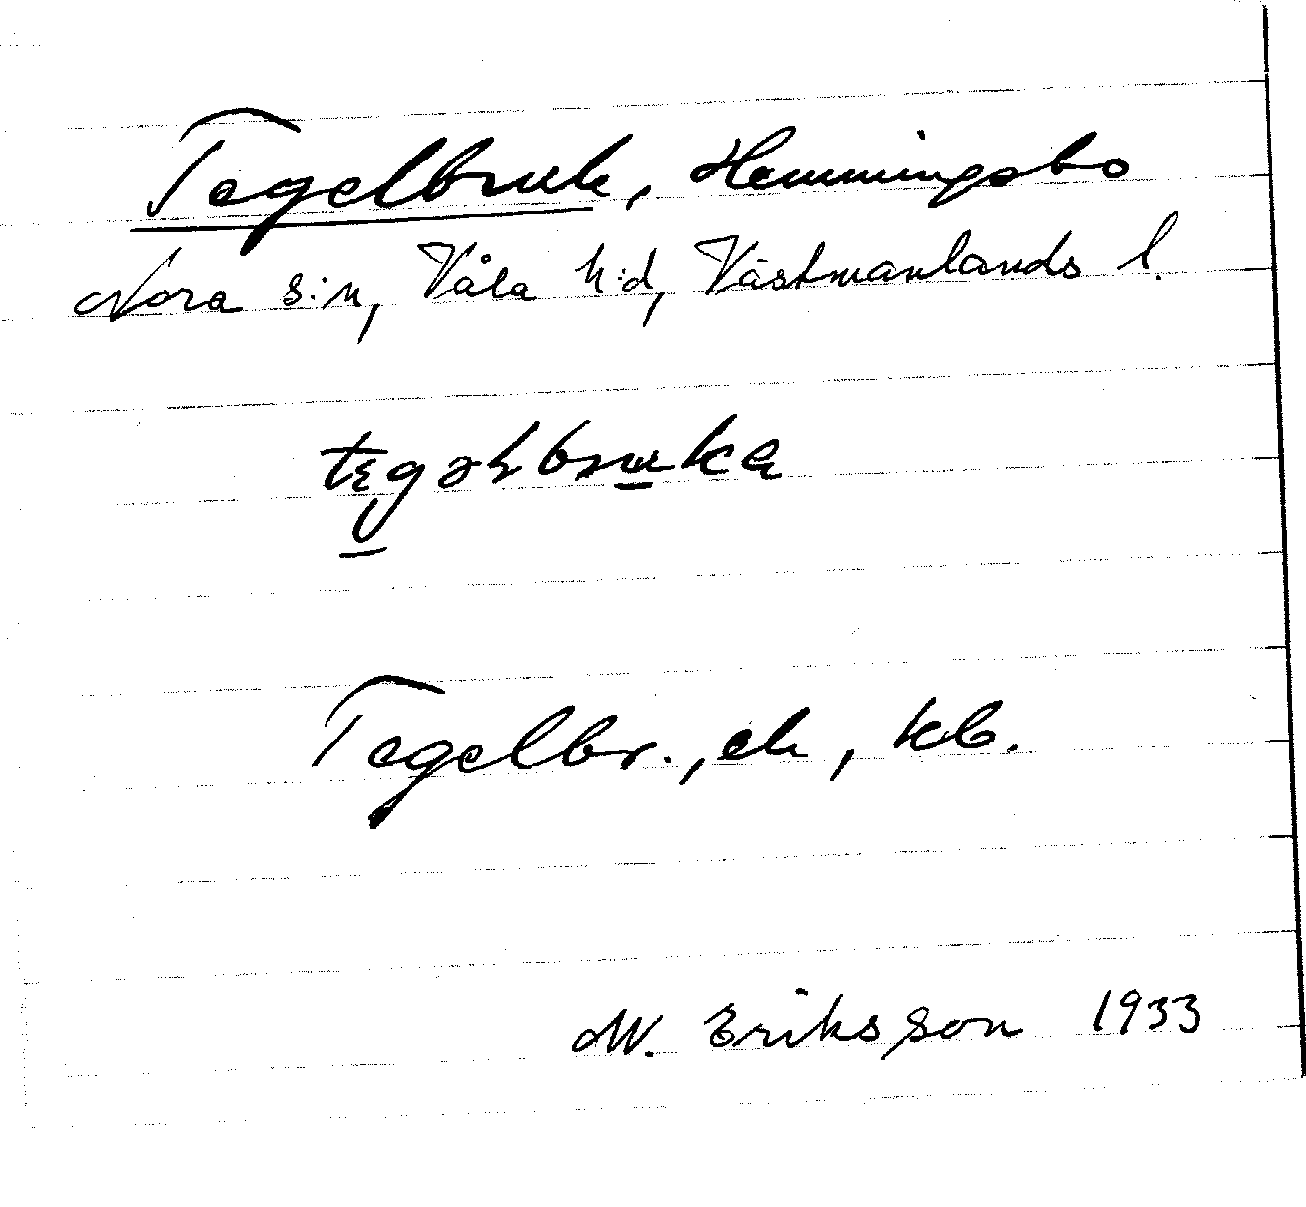 Tegelbruk, Hemmingsbo
Nora s:n, Våla h:d, Västmanlands l.
Tegelbr., ek, kb.
M. Eriksson 1933